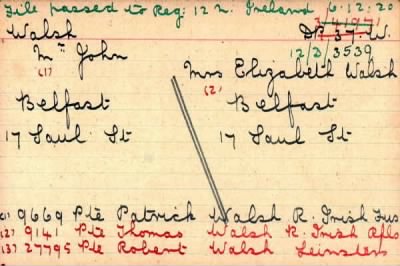 File passed to Reg: 122. Ireland 6.12.20
Walsh DP 37. W.
12/D/3539
Mr John
(1)
Mrs Elizabeth Walsh
(2)
Belfast Belfast
17 Saul St 17 Saul St
(1) 9669 Pte Patrick Walsh R. Irish Fus
(2) 9141 Pte Thomas Walsh R. Irish Rfls
(3) 27795 Pte Robert Walsh Leinsters